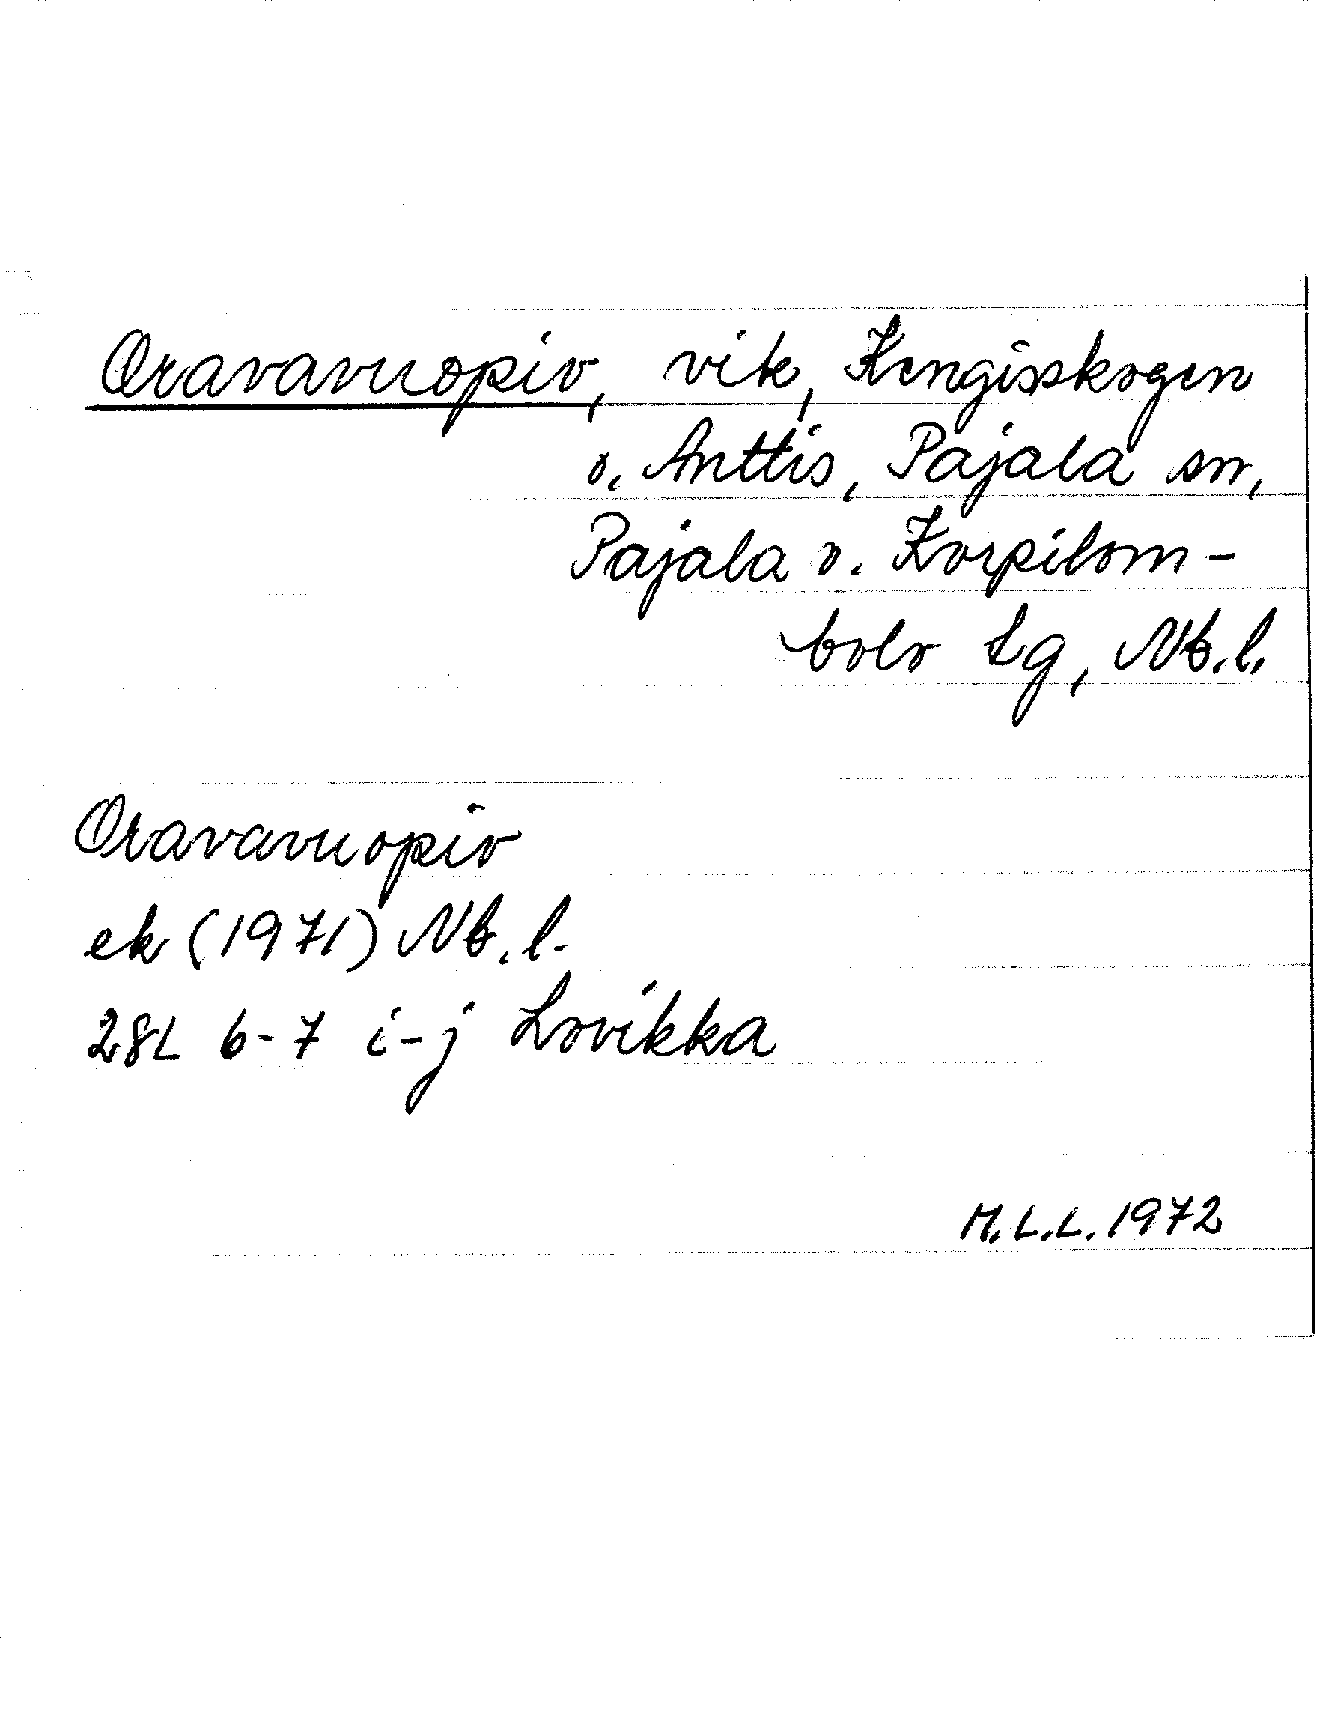 Oravavuopio, vik, Kengisskogen
o. Anttis, Pajala sn,
Pajala o. Korpilom-
bolo tg, Nb.l.
Oravavuopio
ek (1971) Nb.l.
28L 6-7 i-j Lovikka
M.L.L. 1972